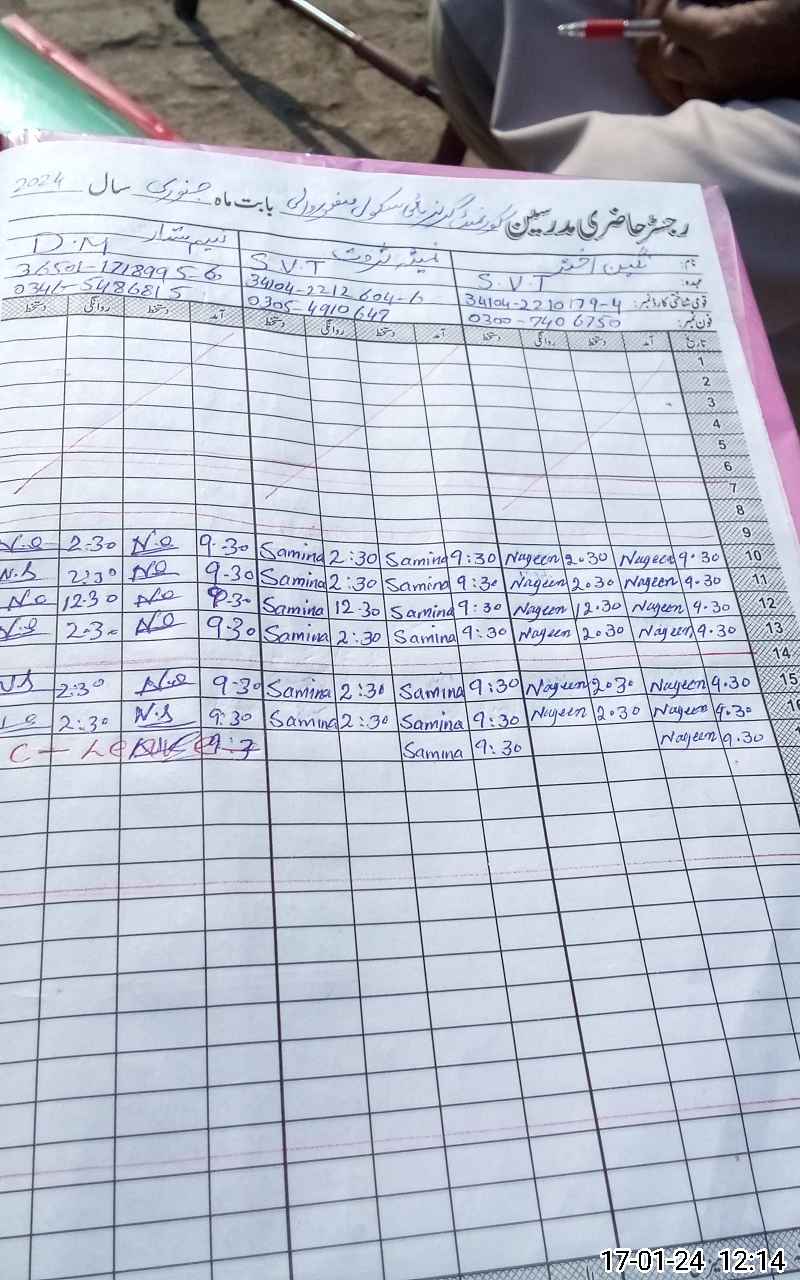 رجسٹر حاضری مدرسین گورنمنٹ گرلز ہائی سکول بابت ماہ جنوری سال 2024
نام: نگین اختر ثمینہ ثروت
عہدہ: S.V.T S.V.T D.M
قومی شناختی کارڈ نمبر: 34104-2210179-4 34104-2212604-6 36501-1718995-6
فون نمبر: 0300-7406750 0305-4910647 0346-5486815
تاریخ آمد دستخط روانگی دستخط آمد دستخط روانگی دستخط آمد دستخط روانگی دستخط
1
2
3
4
5
6
7
8
9
N.S 2.30 N.S 9.30 Samina 2:30 Samina 9:30 Nageen 2.30 Nageen 9.30 10
N.S 2:30 N.S 9.30 Samina 2:30 Samina 9:30 Nageen 2.30 Nageen 9.30 11
N.S 12.30 N.S 9.30 Samina 12.30 Samina 9:30 Nageen 12.30 Nageen 9.30 12
N.S 2.30 N.S 9.30 Samina 2:30 Samina 9:30 Nageen 2.30 Nageen 9.30 13
14
N.S 2:30 N.S 9.30 Samina 2:30 Samina 9:30 Nageen 2.30 Nageen 9.30 15
2:30 N.S 9.30 Samina 2:30 Samina 9:30 Nageen 2.30 Nageen 9.30 16
C - Leave 9:3 Samina 9:30 Nageen 9.30
17-01-24 12:14